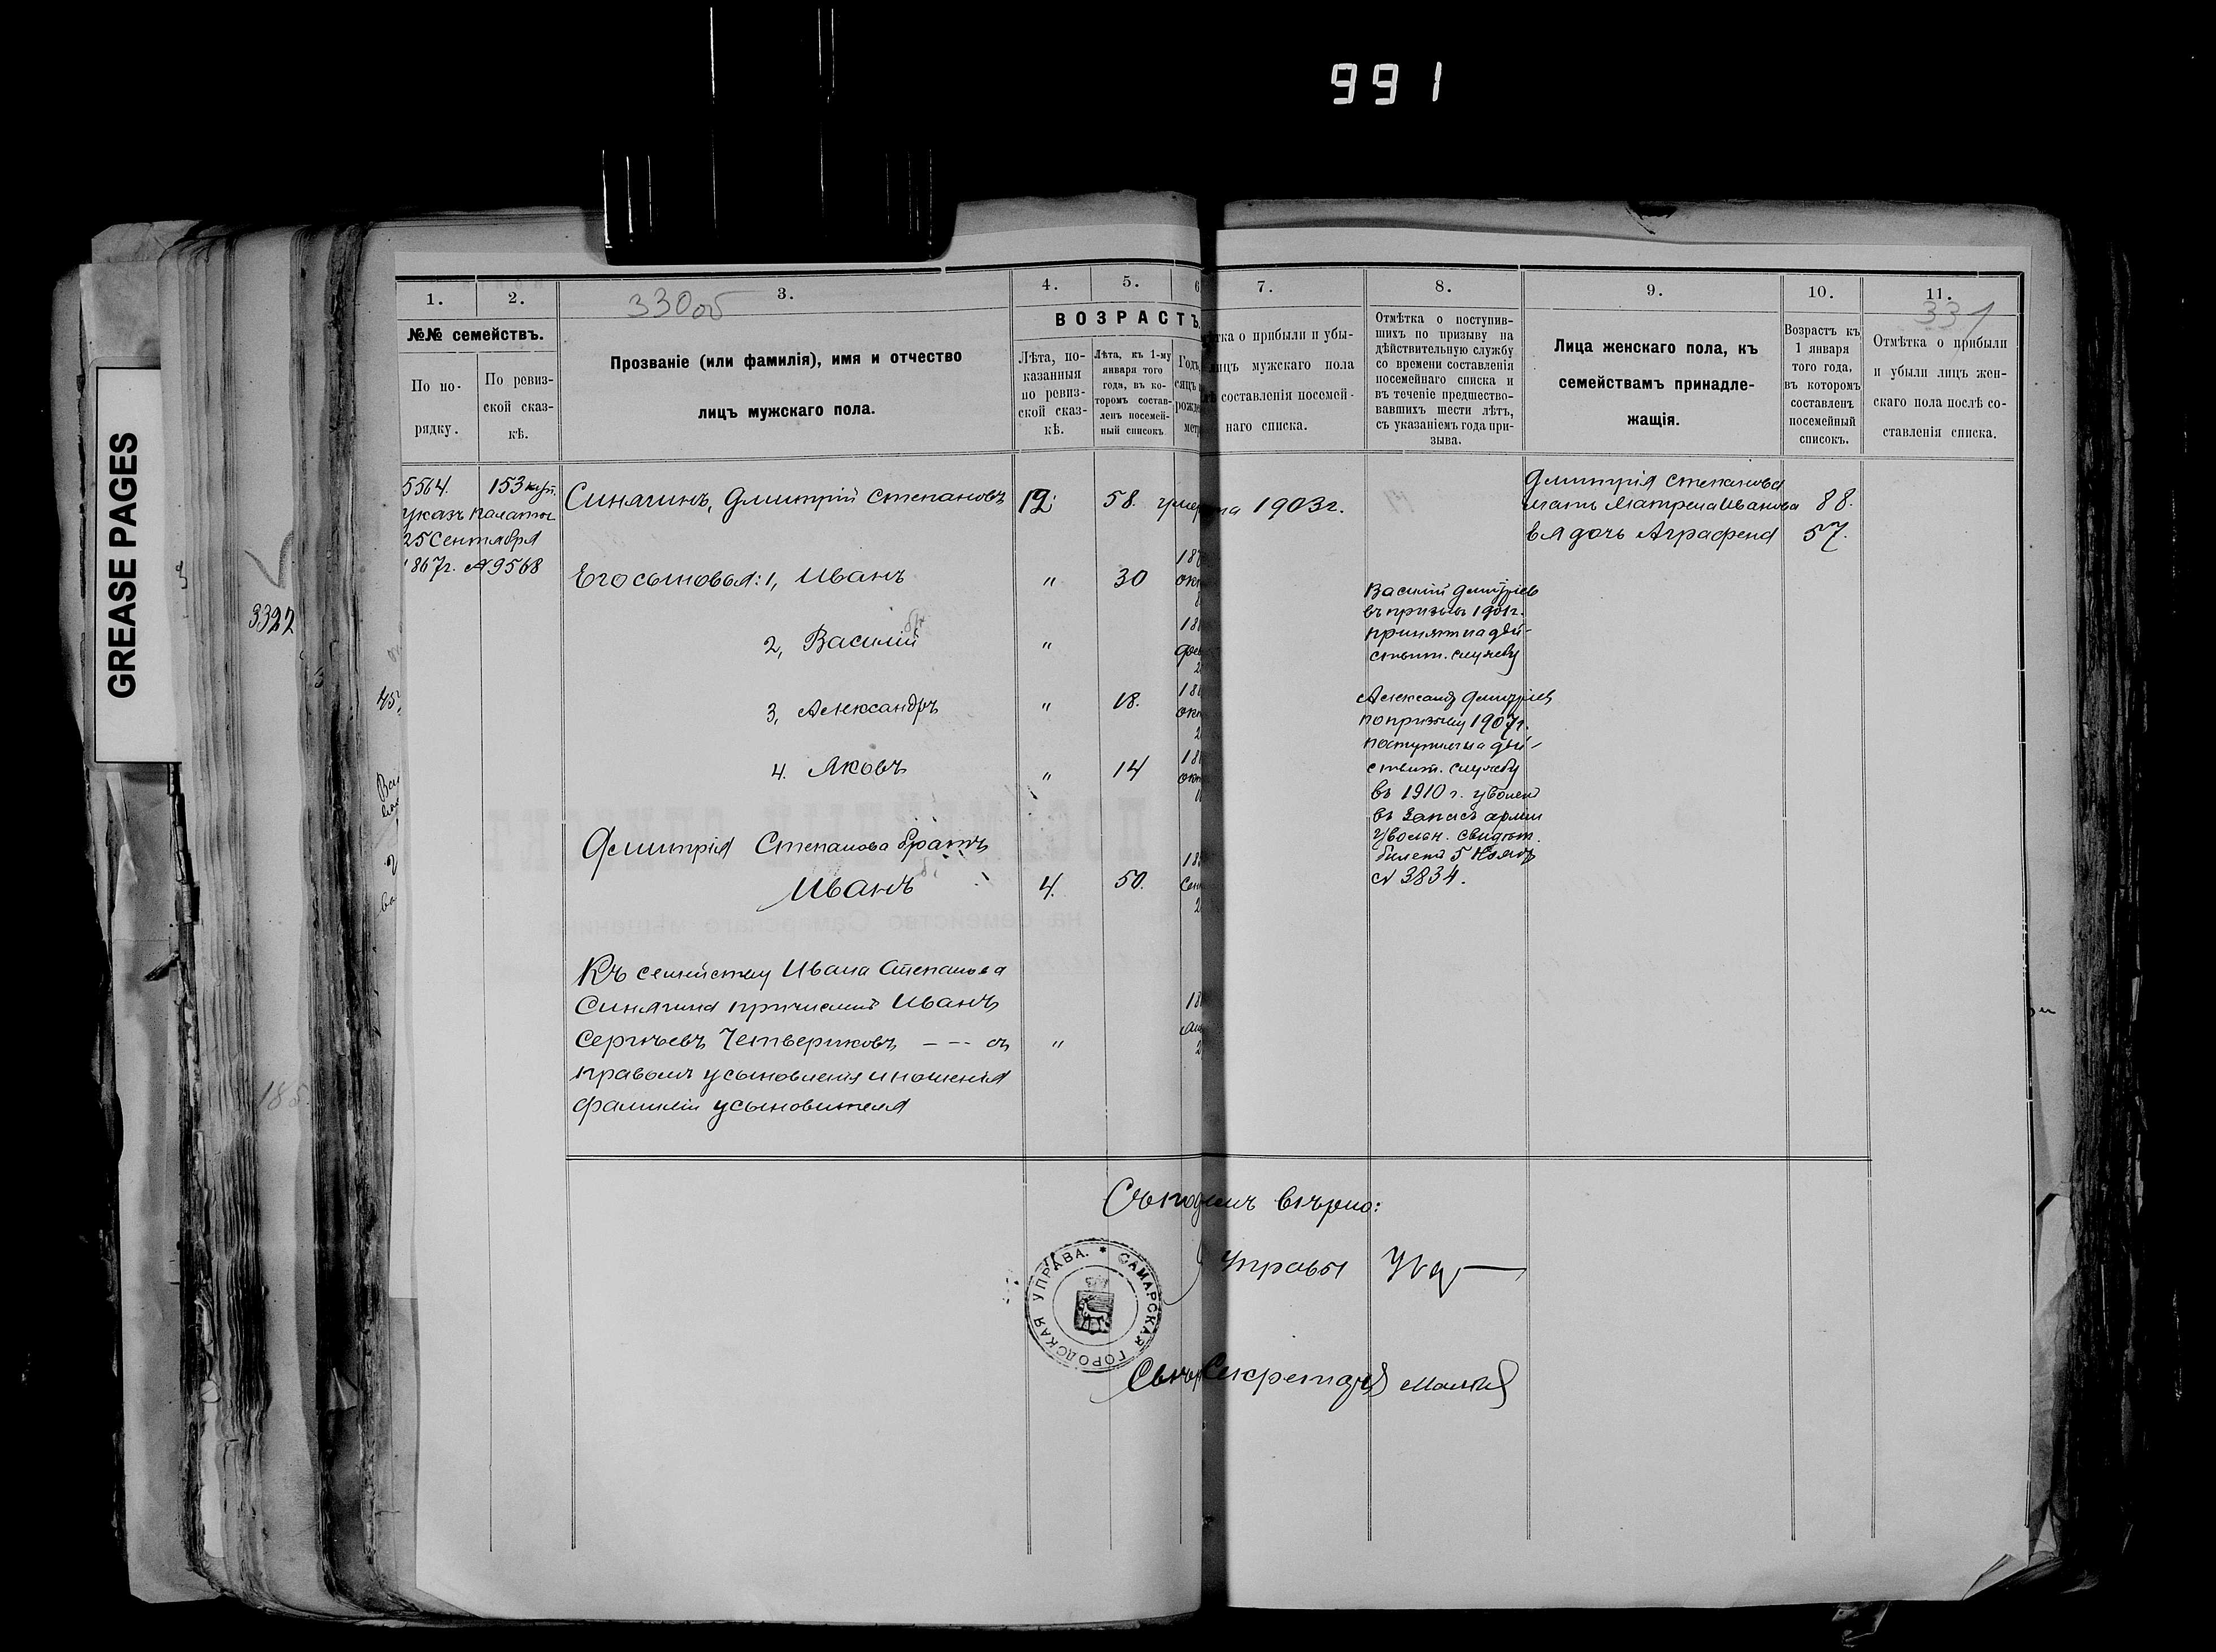 991
GREASE PAGES
3322
185.
1.
2.
3.
4.
5.
6
7.
8.
9.
10.
11.
330об
331
№№ семействъ.
По по-
рядку.
По ревиз-
ской сказ-
кѣ.
Прозваніе (или фамилія), имя и отчество
лицъ мужскаго пола.
ВОЗРАСТЪ.
Лѣта, по-
казанныя
по ревиз-
ской сказ-
кѣ.
Лѣта, къ 1-му
января того
года, въ ко-
торомъ состав-
ленъ посемей-
ный списокъ
Годъ,
сяцъ
рожде
метр
тка о прибыли и убы-
лицъ мужскаго пола
составленія посемей-
наго списка.
Отмѣтка о поступив-
шихъ по призыву на
дѣйствительную службу
со времени составленія
посемейнаго списка и
въ теченіе предшество-
вавшихъ шести лѣтъ,
съ указаніемъ года при-
зыва.
Лица женскаго пола, къ
семействамъ принадле-
жащія.
Возрастъ къ
1 января
того года,
въ которомъ
составленъ
посемейный
списокъ.
Отмѣтка о прибыли
и убыли лицъ жен-
скаго пола послѣ со-
ставленія списка.
5564. 153 куп.
указъ палаты
25 Сентября
1867г. № 9568
Синягинъ, Дмитрій Степановъ 12 58. 1903г.
Дмитрія Степанова
мать Матрена Иванова 88.
ея дочь Аграфена 57.
Его сыновья: 1, Иванъ " 30
2, Василій "
3, Александръ " 18.
4. Яковъ " 14
Василій Дмитріевъ
въ призывъ 1901г.
принятъ на дѣй-
ствит. службу
Александръ Дмитріевъ
по призыву 1907г.
поступилъ на дѣй-
ствит. службу
въ 1910 г. уволенъ
въ запасъ арміи
Уволен. свидѣт.
билетъ 5 Ноября
№ 3834.
Дмитрія Степанова братъ
Иванъ 4. 50.
Къ семейству Ивана Степанова
Синягина причисленъ Иванъ
Сергѣевъ Четвериковъ --- съ "
правомъ усыновленія и ношенія
фамиліи усыновителя
Съ подлин вѣрно:
Управы
Секретарь
САМАРСКАЯ ГОРОДСКАЯ УПРАВА.